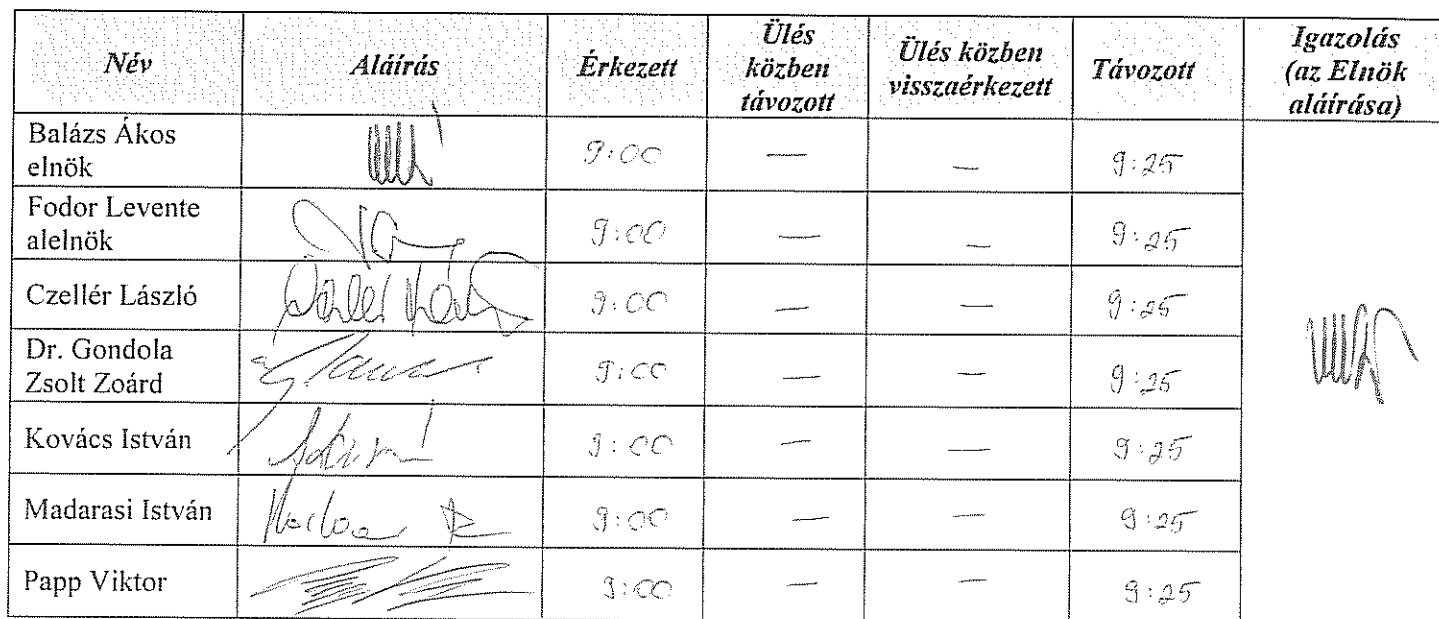 Név Aláírás Érkezett Ülés közben távozott Ülés közben visszaérkezett Távozott Igazolás (az Elnök aláírása)
Balázs Ákos elnök 9:00 — — 9:25
Fodor Levente alelnök 9:00 — — 9:25
Czellér László 9:00 — — 9:25
Dr. Gondola Zsolt Zoárd 9:00 — — 9:25
Kovács István 9:00 — — 9:25
Madarasi István 9:00 — — 9:25
Papp Viktor 9:00 — — 9:25